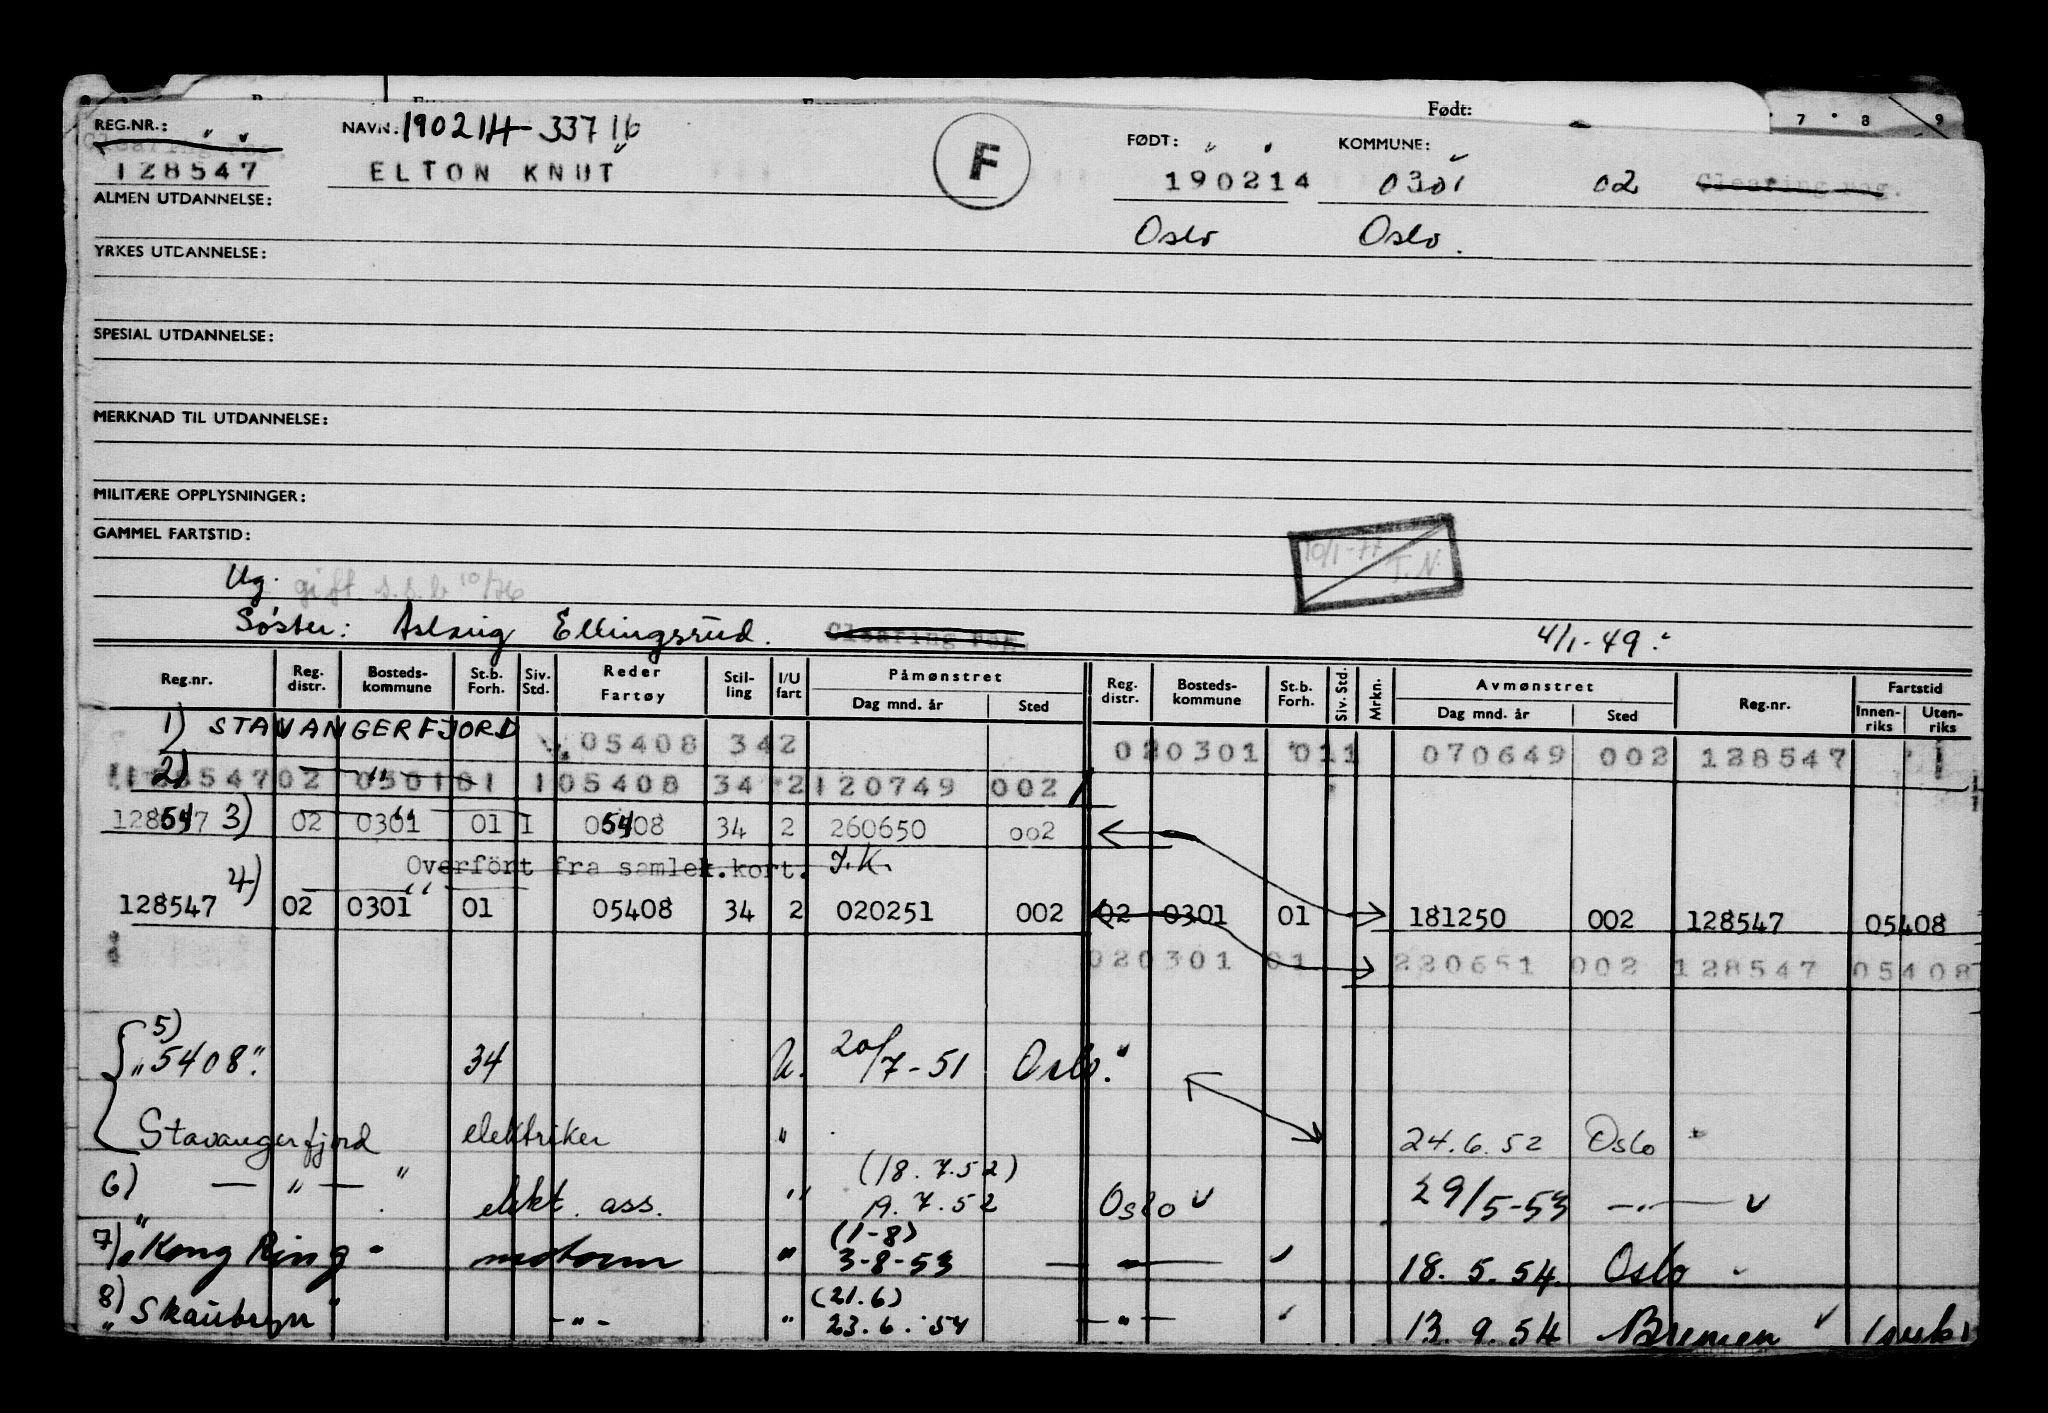 Født:
7 8 9
REG.NR.: NAVN: 190214-33716 F FØDT: KOMMUNE:
128547 ELTON KNUT 190214 0301 02 Clearing reg.
Oslo Oslo.
ALMEN UTDANNELSE:
YRKES UTDANNELSE:
SPESIAL UTDANNELSE:
MERKNAD TIL UTDANNELSE:
MILITÆRE OPPLYSNINGER:
GAMMEL FARTSTID:
10/1-77 T.N.
Ug. gift s.s.b 10/76
Søster: Aslaug Ellingsrud. Clearing reg. 4/1-49.
Reg.nr. Reg. distr. Bosteds-kommune St.b. Forh. Siv. Std. Reder Fartøy Stil-ling I/U fart Påmønstret Dag mnd. år Sted Reg. distr. Bosteds-kommune St.b. Forh. Siv. Std. Mrkn. Avmønstret Dag mnd. år Sted Reg.nr. Fartstid Innen-riks Uten-riks
1) STAVANGERFJORD 05408 342 020301 011 070649 002 128547
2) — " — 128547 02 0301 01 1 05408 34 2 120749 002
128547 3) — " — 02 0301 01 1 05408 34 2 260650 002
Overført fra samlek.kort. J.K.
4) — " —
128547 02 0301 01 05408 34 2 020251 002 02 0301 01 181250 002 128547 05408
020301 01 220651 002 128547 05408
5)
"5408" 34 U. 20/7-51 Oslo.
Stavangerfjord elektriker " 24.6.52 Oslo
6) — " — elekt. ass. " (18.7.52) 19.7.52 Oslo 29/5-53 — " —
7) "Kong Ring" motorm " (1-8) 3-8-53 — " — 18.5.54. Oslo
8) "Skaubryn" - " - " (21.6) 23.6.54 — " — 13.9.54 Bremen